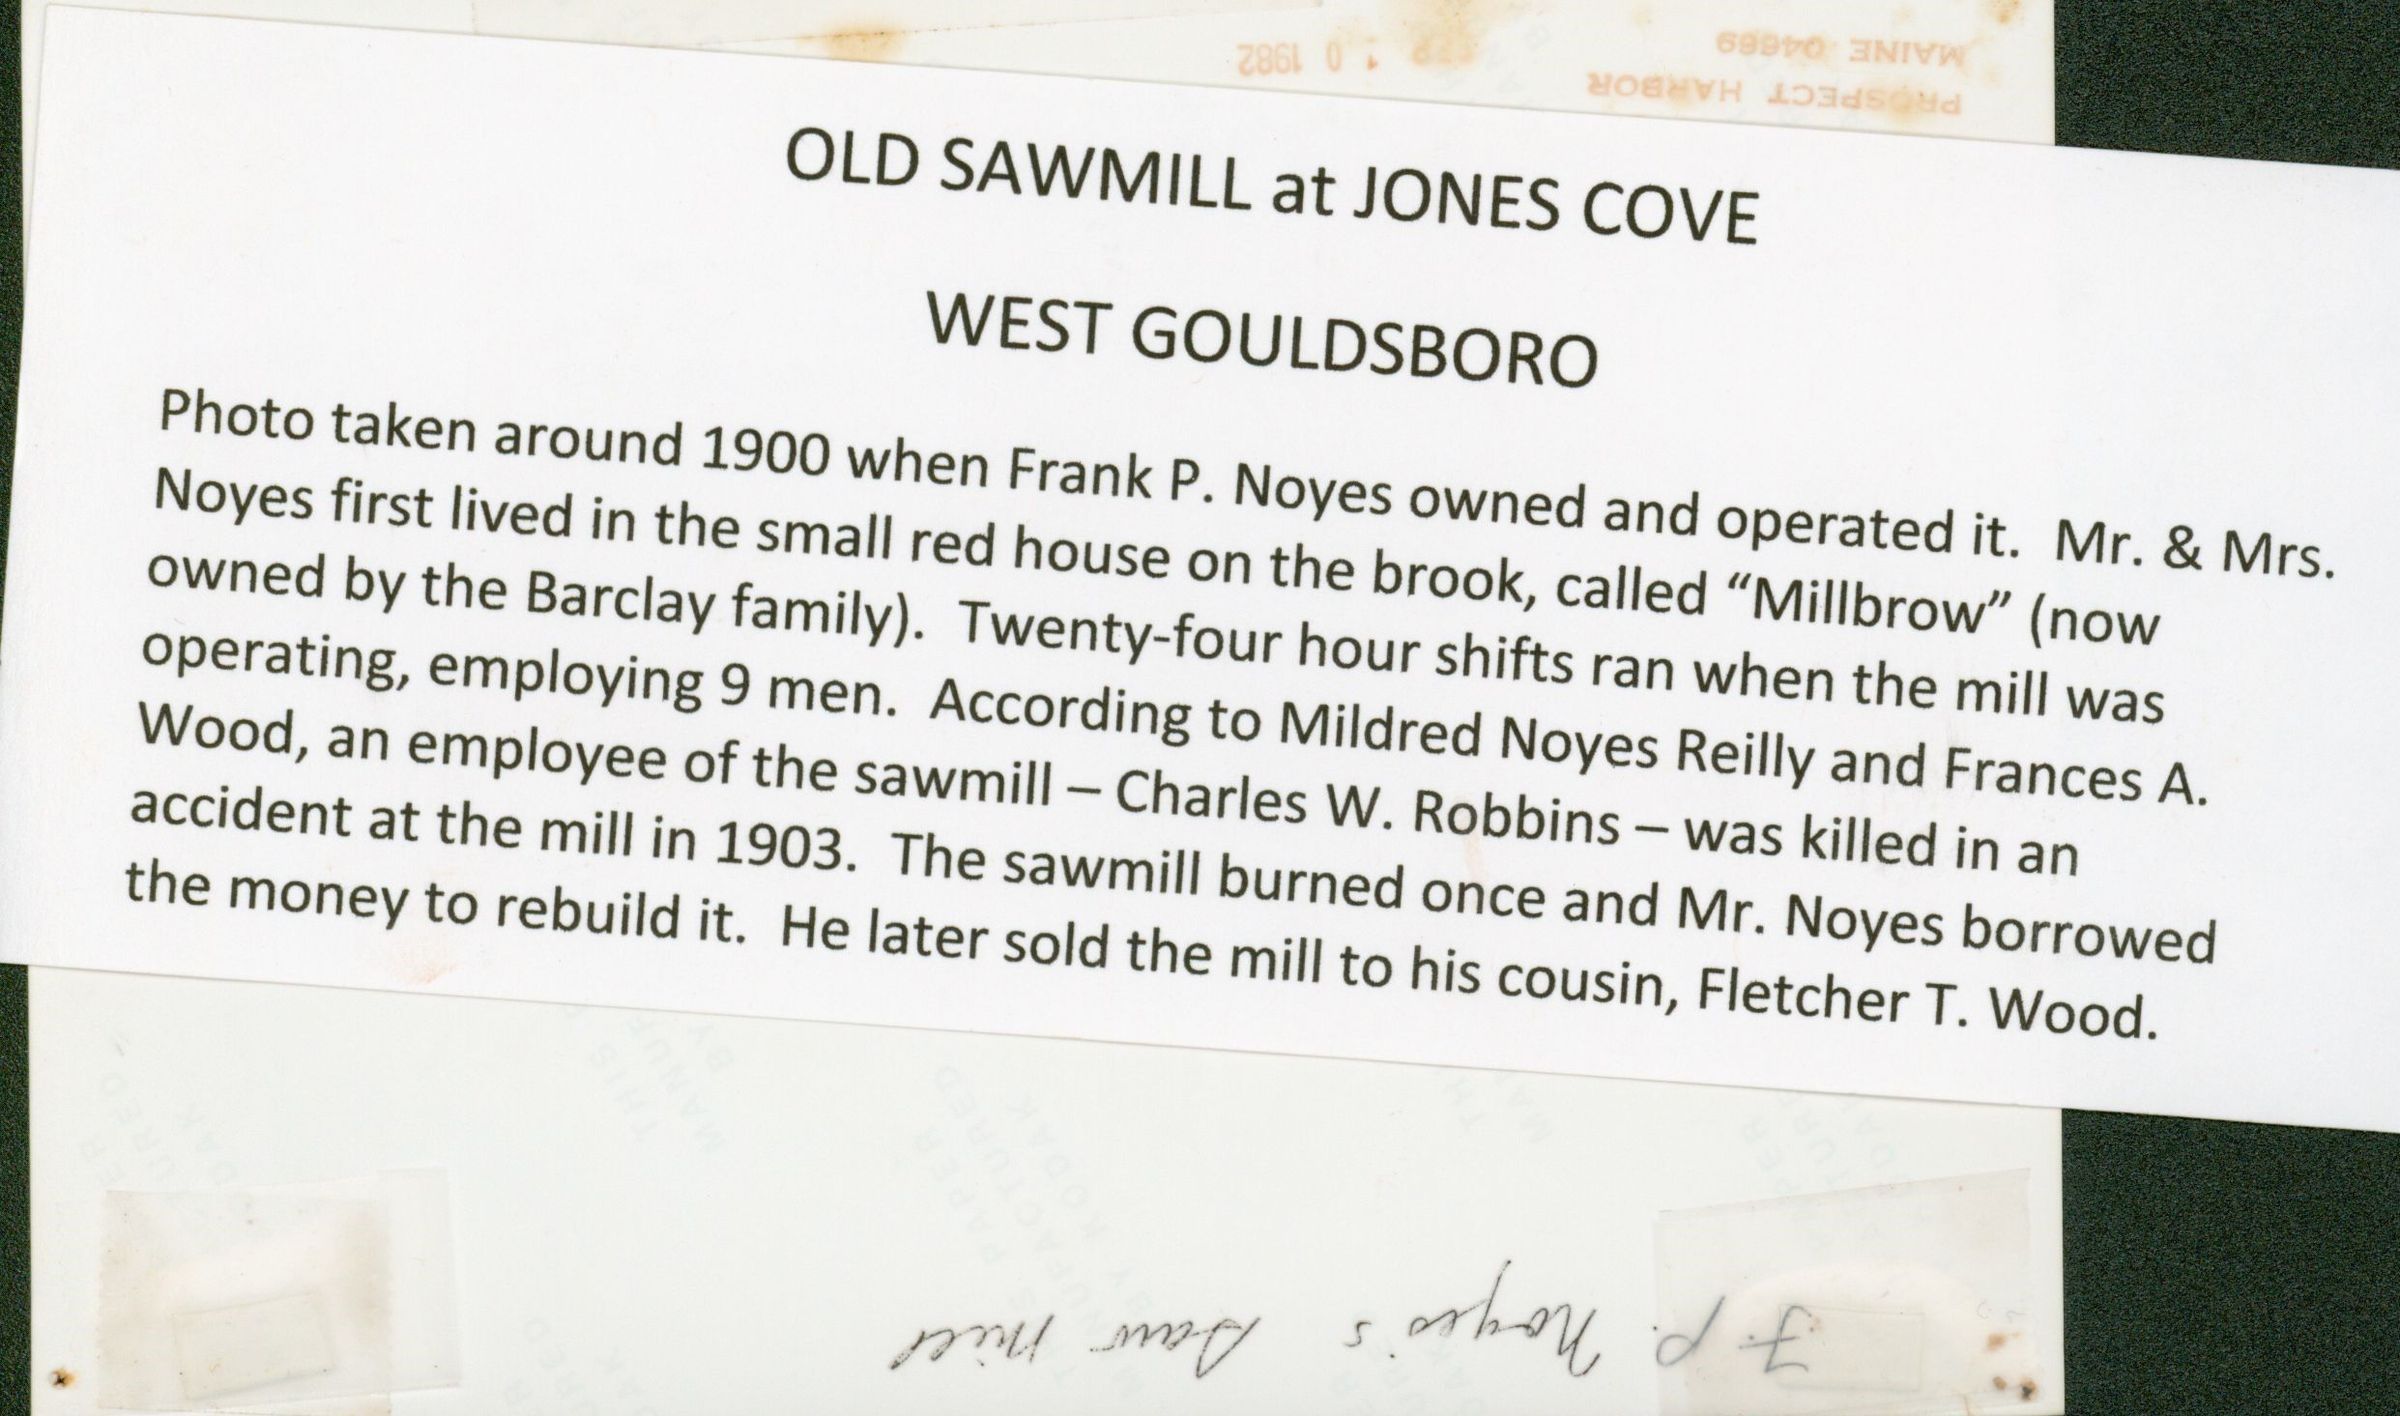 MAINE 04669
PROSPECT HARBOR
1 0 1982
OLD SAWMILL at JONES COVE
WEST GOULDSBORO
Photo taken around 1900 when Frank P. Noyes owned and operated it.  Mr. & Mrs.
Noyes first lived in the small red house on the brook, called “Millbrow” (now
owned by the Barclay family).  Twenty-four hour shifts ran when the mill was
operating, employing 9 men.  According to Mildred Noyes Reilly and Frances A.
Wood, an employee of the sawmill – Charles W. Robbins – was killed in an
accident at the mill in 1903.  The sawmill burned once and Mr. Noyes borrowed
the money to rebuild it.  He later sold the mill to his cousin, Fletcher T. Wood.
THIS PAPER
MANUFACTURED
BY KODAK
F. P. Noyes's Saw Mill